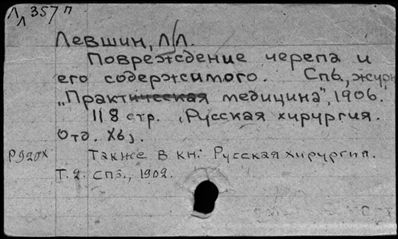 Л 357 п
Л
Левшин, Л.Л.
Повреждение черепа и
его содержимого. Спб., журн
„Практическая медицина", 1906.
118 стр. (Русская хирургия.
Отд. Хвз
Р920х Также в кн: Русская хирургия.
Т. 2. СПБ., 1902.